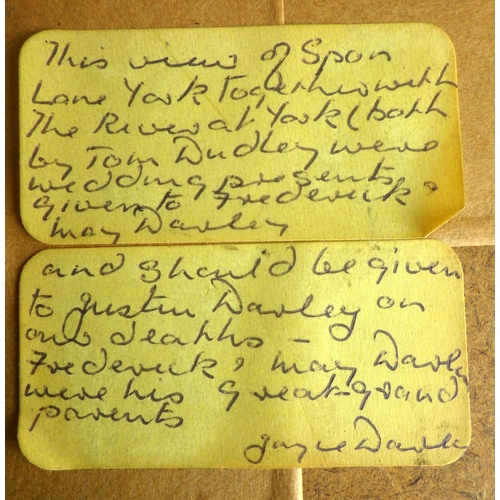 This view of Spon
Lane York together with
The River at York (both
by Tom Dudley were
wedding presents
given to Frederick &
May Darley
and should be given
to Justin Darley on
our deaths –
Frederick & May Darle
were his great-grand
parents
Joyce Darle